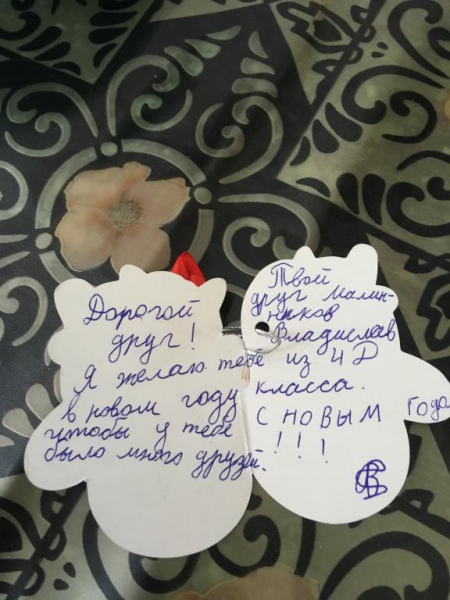 Дорогой
друг!
Я желаю тебе
в новом году
чтобы у тебе
было много друзей.
Твой
друг Малин-
ников
Владислав
из 4 D
класса.
С НОВЫМ года
!!!